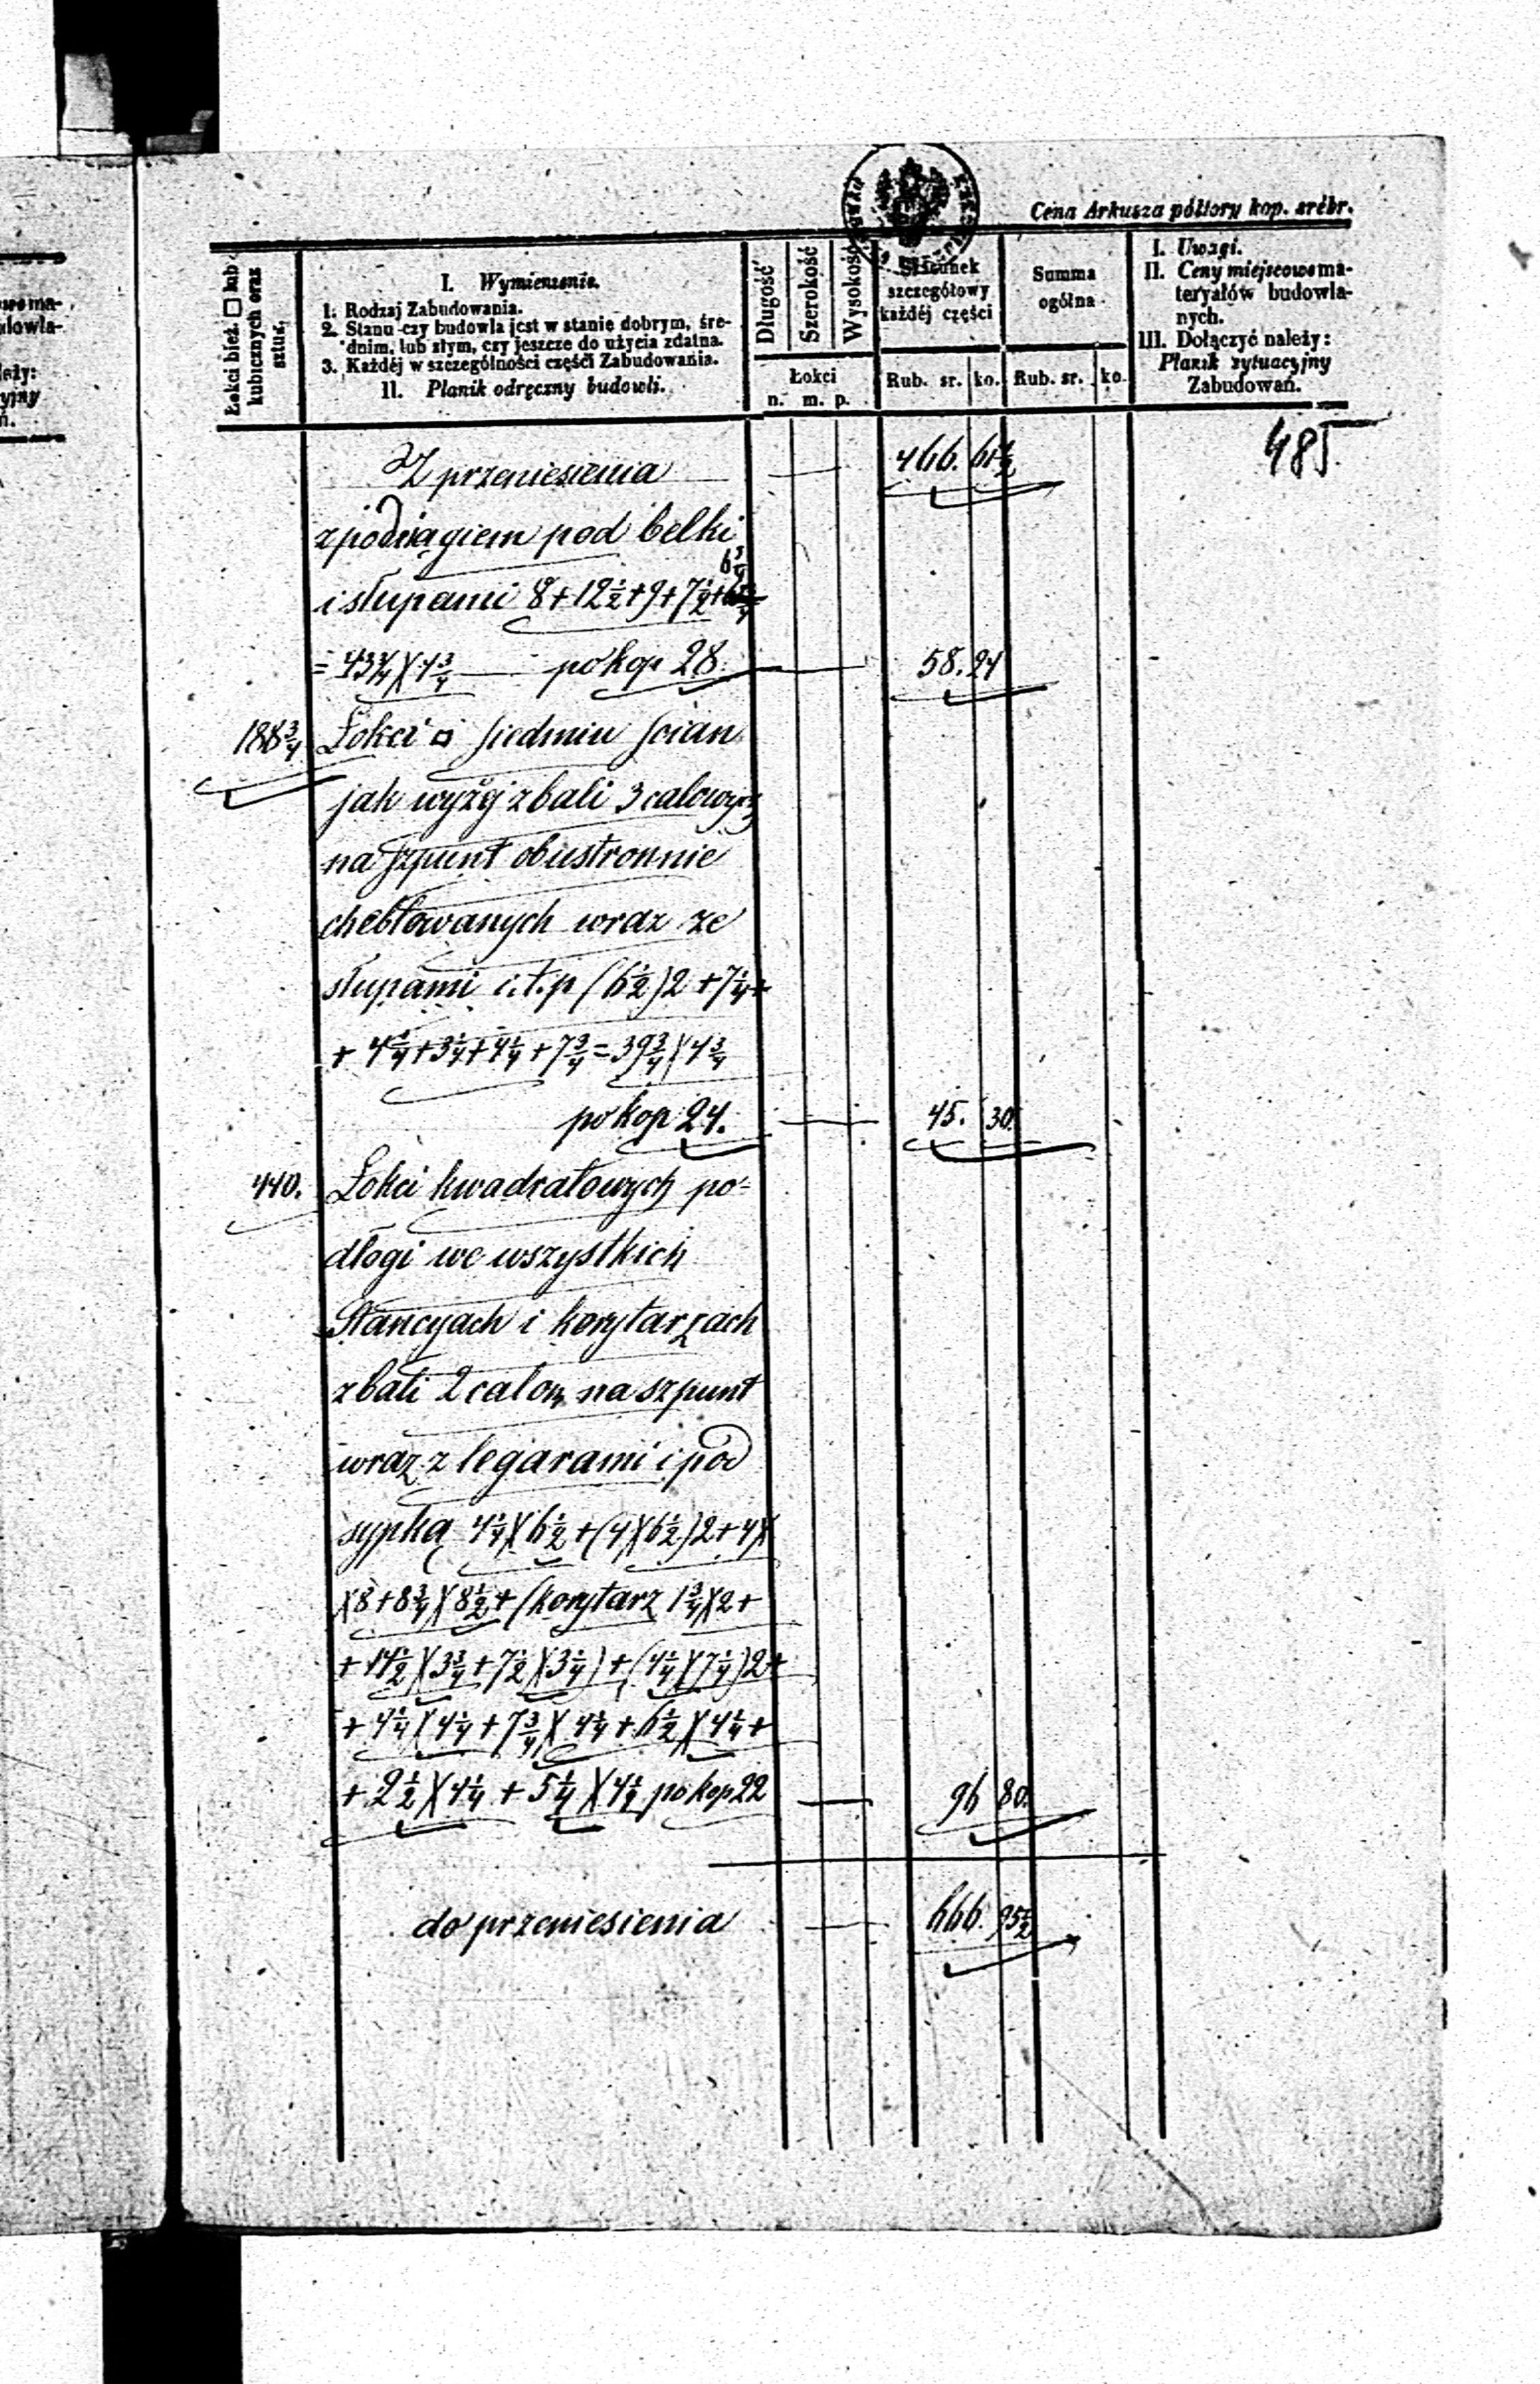 Cena Arkusza półtory kop. srébr.
Łokci bież. □ lub kubicznych oraz sztuk.
I. Wymienienie.
1. Rodzaj Zabudowania.
2. Stanu czy budowla jest w stanie dobrym, śre-
dnim, lub złym, czy jeszcze do użycia zdatna.
3. Każdéj w szczególności części Zabudowania.
II. Planik odręczny budowli.
Długość
Szerokość
Wysokość
Łokci
n. m. p.
Szacunek
szczegółowy
każdéj części
Rub. sr. ko.
Summa
ogólna
Rub. sr. ko.
I. Uwagi.
II. Ceny miejscowe ma-
teryałów budowla-
nych.
III. Dołączyć należy:
Planik sytuacyjny
Zabudowań.
485.
Z przeniesienia 466. 61½
z podciągiem pod belki
i słupami 8+12½+9+7½+ 6¾
= 43¾)(4¾ po kop 28. 58. 24
188¾ Łokci □ siedmiu ścian
jak wyżéj z bali 3 calowych
na szpunt obustronnie
cheblowanych wraz ze
słupami i t. p (6½)2 +7¼+
+ 4¼+3¼+4¼+7¾=39¾)(4¾
po kop 24. 45. 30.
440. Łokci kwadratowych po=
dłogi we wszystkich
Stancyach i korytarzach
z bali 2 calow na szpunt
wraz z legarami i pod
sypką 4¼)(6½+(4)(6½)2+4)(
)(8+8¾)(8½+(korytarz 1¾)(2+
+14½)(3¾+7½)(3¼)+(4¼)(7¼)2+
+4¼)(4¼+7¾)(4¼+6½)(4¼+
+2½)(4¼+5¼)(4¼ po kop 22 96 80.
do przeniesienia 666. 95½